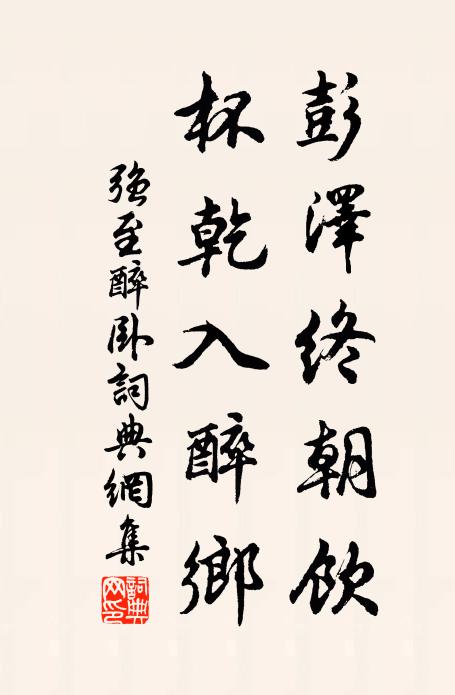 彭澤終朝飲
杯乾入醉鄉
強至醉臥詞典網集
詞典
网印